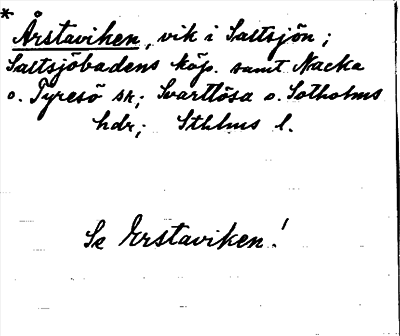 * Årstaviken, vik i Saltsjön;
Saltsjöbadens köp. samt Nacka
o. Tyresö sk; Svartlösa o. Sotholms
hdr; Sthlms l.
Se Erstaviken!